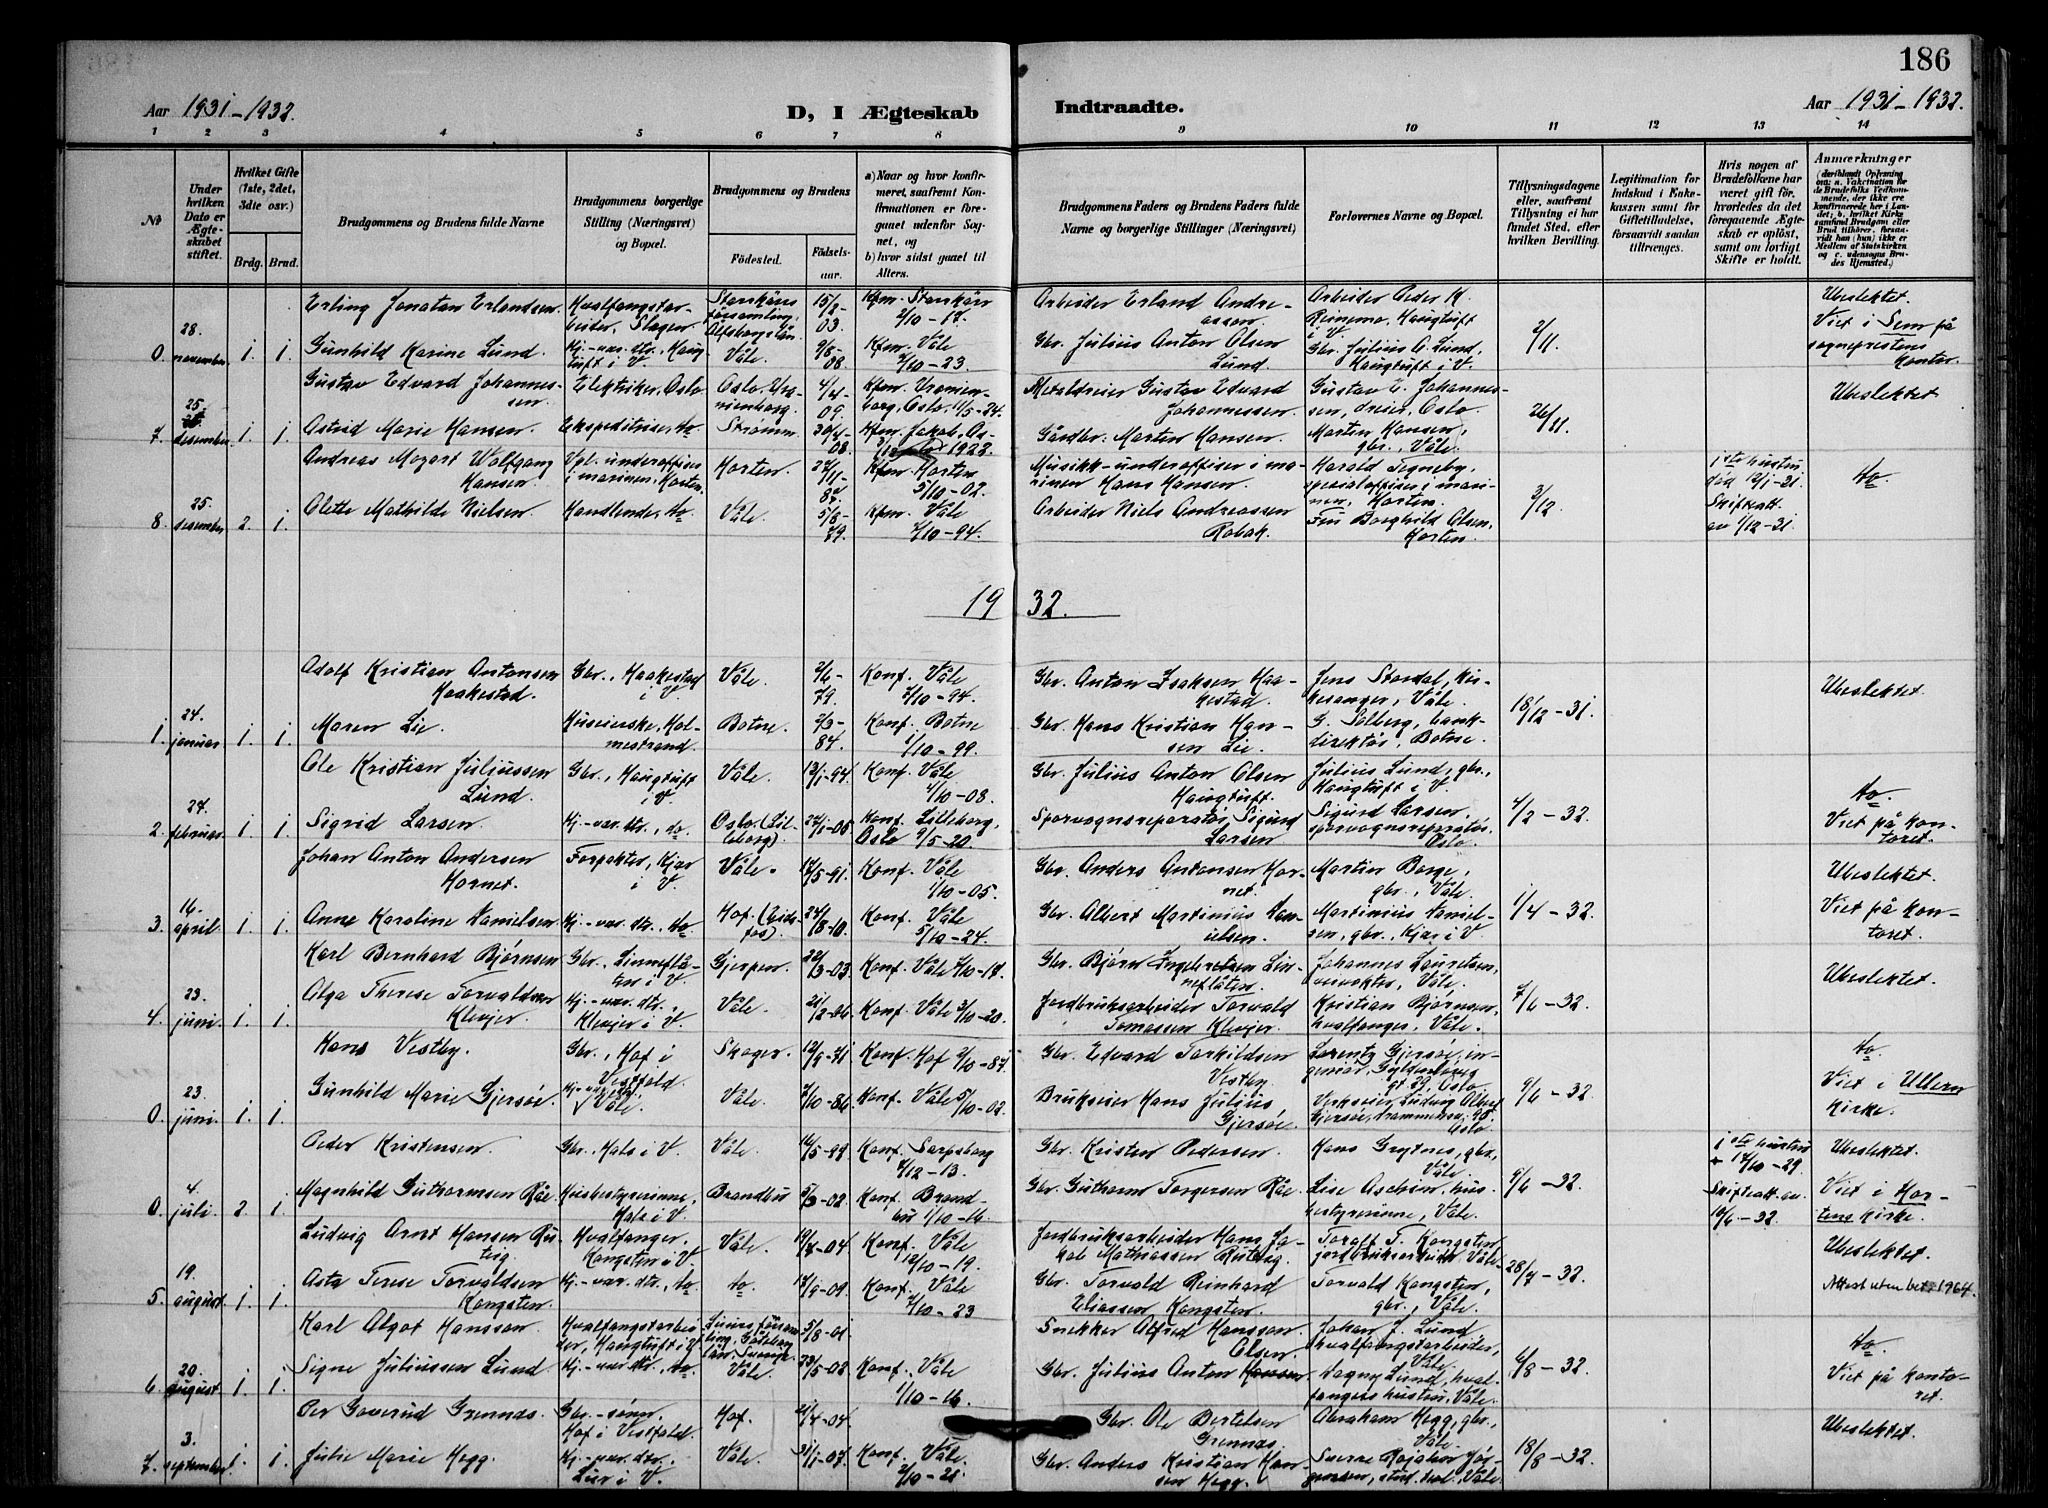 186
Aar 1931-1932.
D, I Ægteskab Indtraadte.
Aar 1931-1932.
1 2 3 4 5 6 7 8 9 10 11 12 13 14
No
Under hvilken Dato er Ægteskabet stiftet.
Hvilket Gifte (1ste, 2det, 3die osv.)
Brdg. Brud.
Brudgommens og Brudens fulde Navne
Brudgommens borgerlige Stilling (Næringsvei) og Bopæl.
Brudgommens og Brudens
Födested. Födsels-aar.
a) Naar og hvor konfirmeret, saafremt Konfirmationen er foregaaet udenfor Sognet, og
b) hvor sidst gaaet til Alters.
Brudgommens Faders og Brudens Faders fulde Navne og borgerlige Stillinger (Næringsvei)
Forlovernes Navne og Bopæl.
Tillysningsdagene eller, saafremt Tillysning ei har fundet Sted, efter hvilken Bevilling.
Legitimation for Indskud i Enkekassen samt for Giftetilladelse, forsaavidt saadan tiltrænges.
Hvis nogen af Brudefolkene har været gift før, hvorledes da det foregaaende Ægteskab er oplöst, samt om lovligt Skifte er holdt.
Anmærkninger
Erling Jonatan Erlandsen Hvalfangstarbeider, Slagen 15/2-03. Arbeider Erland Andreasson. Arbeider Peder K. Ubeslektet.
0. 28. november 1. 1. Gunhild Karine Lund. Hj.-vær. dtr., Haugtuft i V. Våle. 9/8-08. Kfm. Våle Gbr. Julius Anton Olsen Lund. Gbr. Julius A. Lund, Haugtuft i V. 2/11. Viet i Sem på sogneprestens kontor.
Gustav Edvard Johannessen. Elektriker, Oslo Oslo, Uranienborg. 4/4-09. Kfm. Uranienborg, Oslo, Metaldreier Gustav Edvard Johannessen Gustav E. Johannessen, dreier, Oslo Ubeslektet
7. 25. desember. 1. 1. Astrid Marie Hansen. Ekspeditrise, do Strømm. Gårdbr. Martin Hansen. Martin Hansen, gbr., Våle. 26/11.
Andreas Mozart Wolfgang Hansen. underoffiser i marinen, Horten. Horten. 27/11- Kfm. Horten 5/10-02. Musikk-underoffiser i marinen Hans Hansen. Harald Tegneby, spesialoffiser i marinen, Horten. 1ste hustru død 19/1-21. Skifteatt. av 1/12-31. do
8. 25. desember 2. 1. Olette Mathilde Nielsen. Handlende, do Våle. 5/8-79. Kfm. Våle Arbeider Niels Andreassen Rabak. Frü Borghild Olsen, Horten. 3/12
1932.
Adolf Kristian Antonsen Haakestad. Gbr., Haakestad i V. Våle. 2/6-79. Konf. Våle Gbr. Anton Isaksen Haakestad. Jens Stordal, kirkesanger, Våle. Ubeslektet
1. 24. januar 1. 1. Maren Lie. Huseierske, Holmestrand. Botne. 2/3-84. Konf. Botne 1/10-99. Gbr. Hans Kristian Hansen Lie. G. Solberg, bankdirektør, Botne. 18/12-31.
Ole Kristian Juliussen Lund. Gbr., Haugtuft i V. Våle. 13/1-94. Konf. Våle 4/10-08. Gbr. Julius Anton Olsen Haugtuft. Julius Lund, gbr., Haugtuft i V. do.
2. 27. februar 1. 1. Sigrid Larsen. Hj.-vær. dtr., do. Oslo (Lilleborg). Konf. Lilleborg, Oslo 9/5-20. Sporvognsreparatør Sigurd Larsen Sigurd Larsen, sporvognsreparatør, Oslo. 4/2-32. Viet på kontoret.
Johan Anton Andersen Hornet. Forpakter, Kjær i V. Våle. 17/5-91. Konf. Våle 1/10-05. Gbr. Anders Antonsen Hornet. Martin Borge, gbr., Våle. Ubeslektet.
3. 16. april. 1. 1. Anne Karoline Danielsen Hj.-vær. dtr., do Hof (Eidsfos). 24/8-10. Konf. Våle 5/10-24. Gbr. Albert Martinius Danielsen. Martinius Danielsen, gbr., Kjær i V. 1/4-32. Viet på kontoret.
Karl Bernhard Bjørnsen Gbr., Linneflåten i V. Gjerpen. 22/3-03. Konf. Våle 7/10-17. Gbr. Bjørn Ingebretsen Linneflåten. Johannes Lauritsen, Våle. Ubeslektet.
4. 23. juni. 1. 1. Olga Therese Torvaldsen Klevjer. Hj.-vær. dtr., Klevjer i V. Våle. 21/2-06. Konf. Våle 3/10-20. Jordbruksarbeider Torvald Tomassen Klevjer. Kristian Bjørnsen, hvalfanger, Våle. 7/6-32.
Hans Vestby. Gbr., Hof i Vestfold. Skoger. 12/9-71 Konf. Hof 2/10-87. Gbr. Edvard Torkildsen Vestby. Lorentz Gjersøe, ingeniør, Gyldenløvesgt 39, Oslo do.
0. 23. juni. 1. 1. Gunhild Marie Gjersøe. Våle. Våle. 7/10-86. Konf. Våle 5/10-02. Brukseier Hans Julius Gjersøe. Verkseier Ludvig Albert Gjersøe, Drammensv. 90, Oslo. 9/6-32. Viet i Ullern kirke.
Peder Kristensen. Gbr., Hals i V. Våle. 16/5-99 Konf. Sarpsborg 7/12-13. Gbr. Kristen Pedersen. Hans Grytnes, gbr., Våle. 1ste hustru 17/10-29. Ubeslektet
0. 4. juli. 2. 1. Magnhild Guthormsen Råe Husbestyrerinne, Hals i V. Brandbu 5/3-02 Konf. Brandbu 1/10-16. Gbr. Guthorm Torgersen Råe Lise Aschim, husbestyrerinne, Våle. 9/6-32. Skifteatt. av 10/6-32. Viet i Hortens kirke.
Ludvig Arnt Hansen Rutig. Hvalfanger, Kangsten i V. Våle. Konf. Våle 12/10-19. Jordbruksarbeider Hans Jakob Mathiassen Rutig. Toralf T. Kongsten, jordbruksarbeider, Våle. Ubeslektet.
5. 19. august 1. 1. Asta Terese Torvaldsen Kongsten. Hj.-vær. dtr., do do. Konf. Våle 7/10-23 Gbr. Torvald Reinhard Eliassen Kongsten. Torvald Kongsten, gbr., Våle. 28/7-32. Attest uten bet. 1964.
Karl Algot Hansson. Hvalfangstarbeider, Haugtuft i V. 5/8-01 Snekker Alfred Hansson. Johan J. Lund hvalfangstarbeider, Våle. do.
6. 20. august 1. 1. Signe Juliussen Lund. Hj.-vær. dtr., do. Våle. 23/5-02 Konf. Våle 1/10-16. Gbr. Julius Anton Hansen Olsen. Dagny Lund, hvalfangers hustru, Våle. 6/8-32. Viet på kontoret.
Per Goverud Grennes. Gbr.-sønn, Hof i Vestfold. Hof. Gbr. Ole Bertelsen Grennes. Abraham Hegg, gbr., Våle. Ubeslektet
7. 3. september 1. 1. Julie Marie Hegg. Hj.-vær. dtr., Lur i V. Våle. 31/1-07. Konf. Våle. 2/10-21. Gbr. Anders Kristian Hansen Hegg. Sverre Rojahn Jørgensen, stud. real., Våle. 18/8-32.